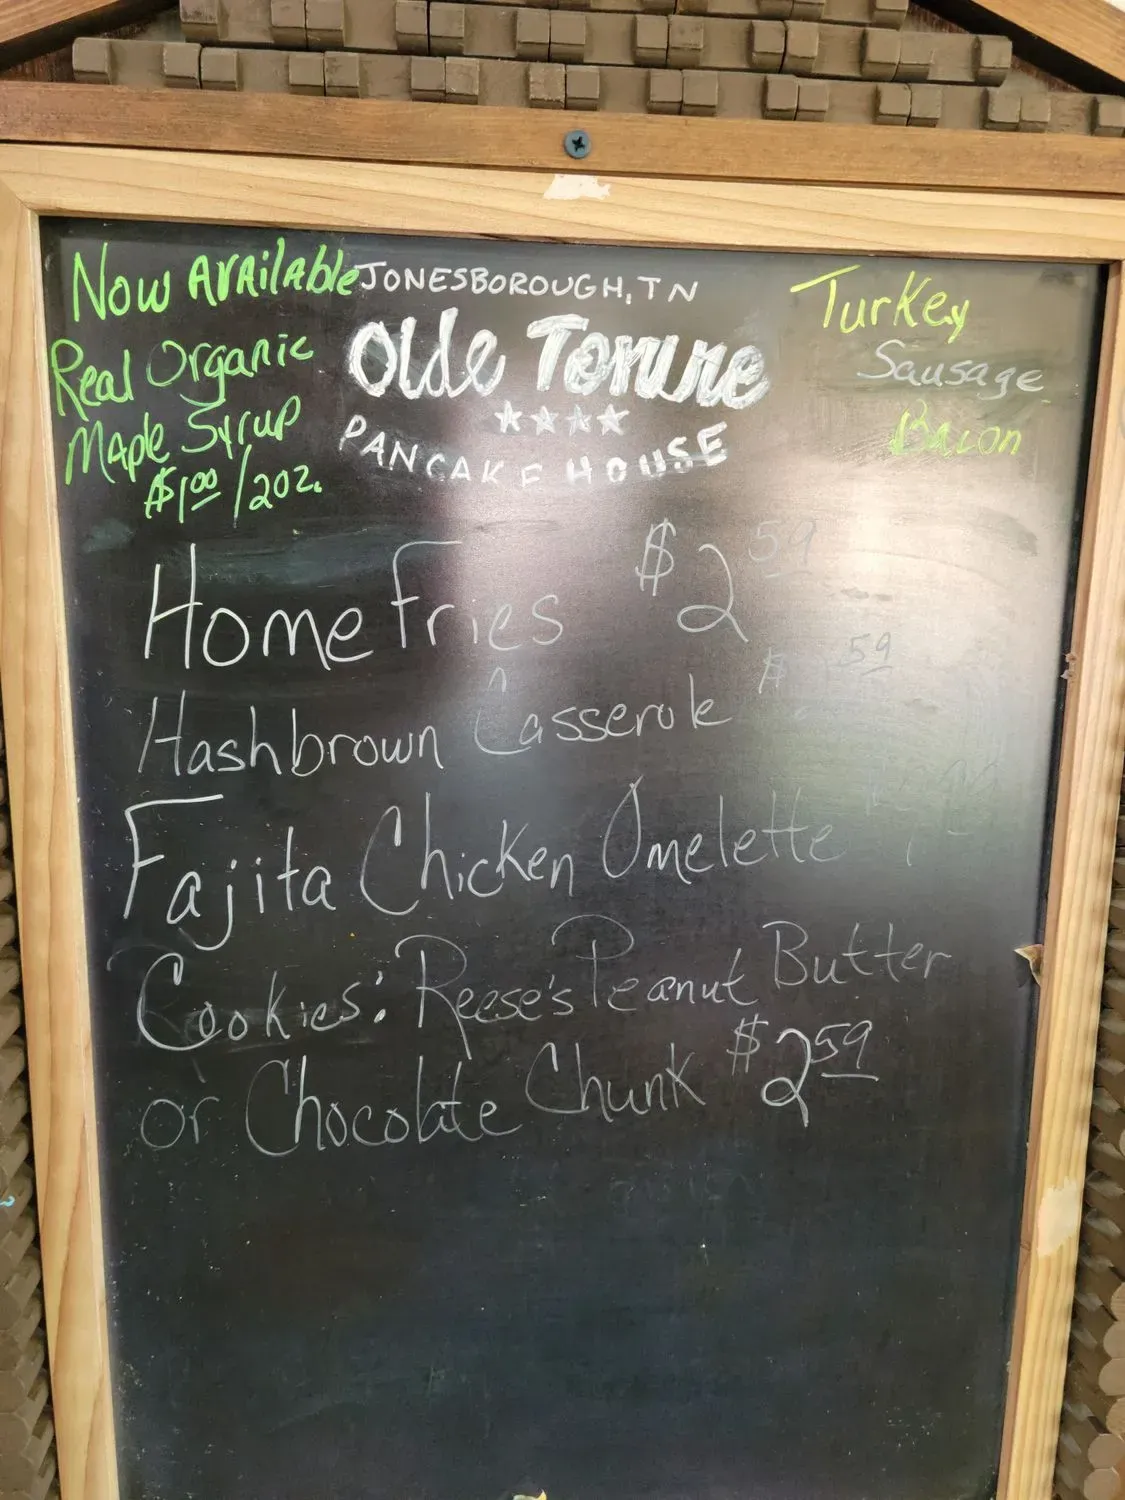 Now Available
Real Organic
Maple Syrup
$1.00/2oz.
JONESBOROUGH, TN
Olde Towne
PANCAKE HOUSE
Turkey
Sausage
Bacon
Home Fries $2.59
Hashbrown Casserole $ .59
Fajita Chicken Omelette
Cookies: Reese's Peanut Butter
or Chocolate Chunk $2.59